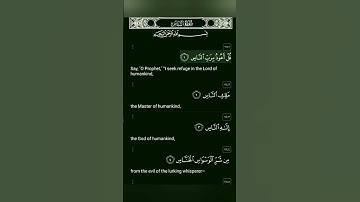 سورة الناس
بسم الله الرحمن الرحيم
قُلْ أَعُوذُ بِرَبِّ ٱلنَّاسِ ١
Say, ˹O Prophet,˺ "I seek refuge in the Lord of
humankind,
مَلِكِ ٱلنَّاسِ ٢
the Master of humankind,
إِلَـٰهِ ٱلنَّاسِ ٣
the God of humankind,
مِن شَرِّ ٱلْوَسْوَاسِ ٱلْخَنَّاسِ ٤
from the evil of the lurking whisperer—